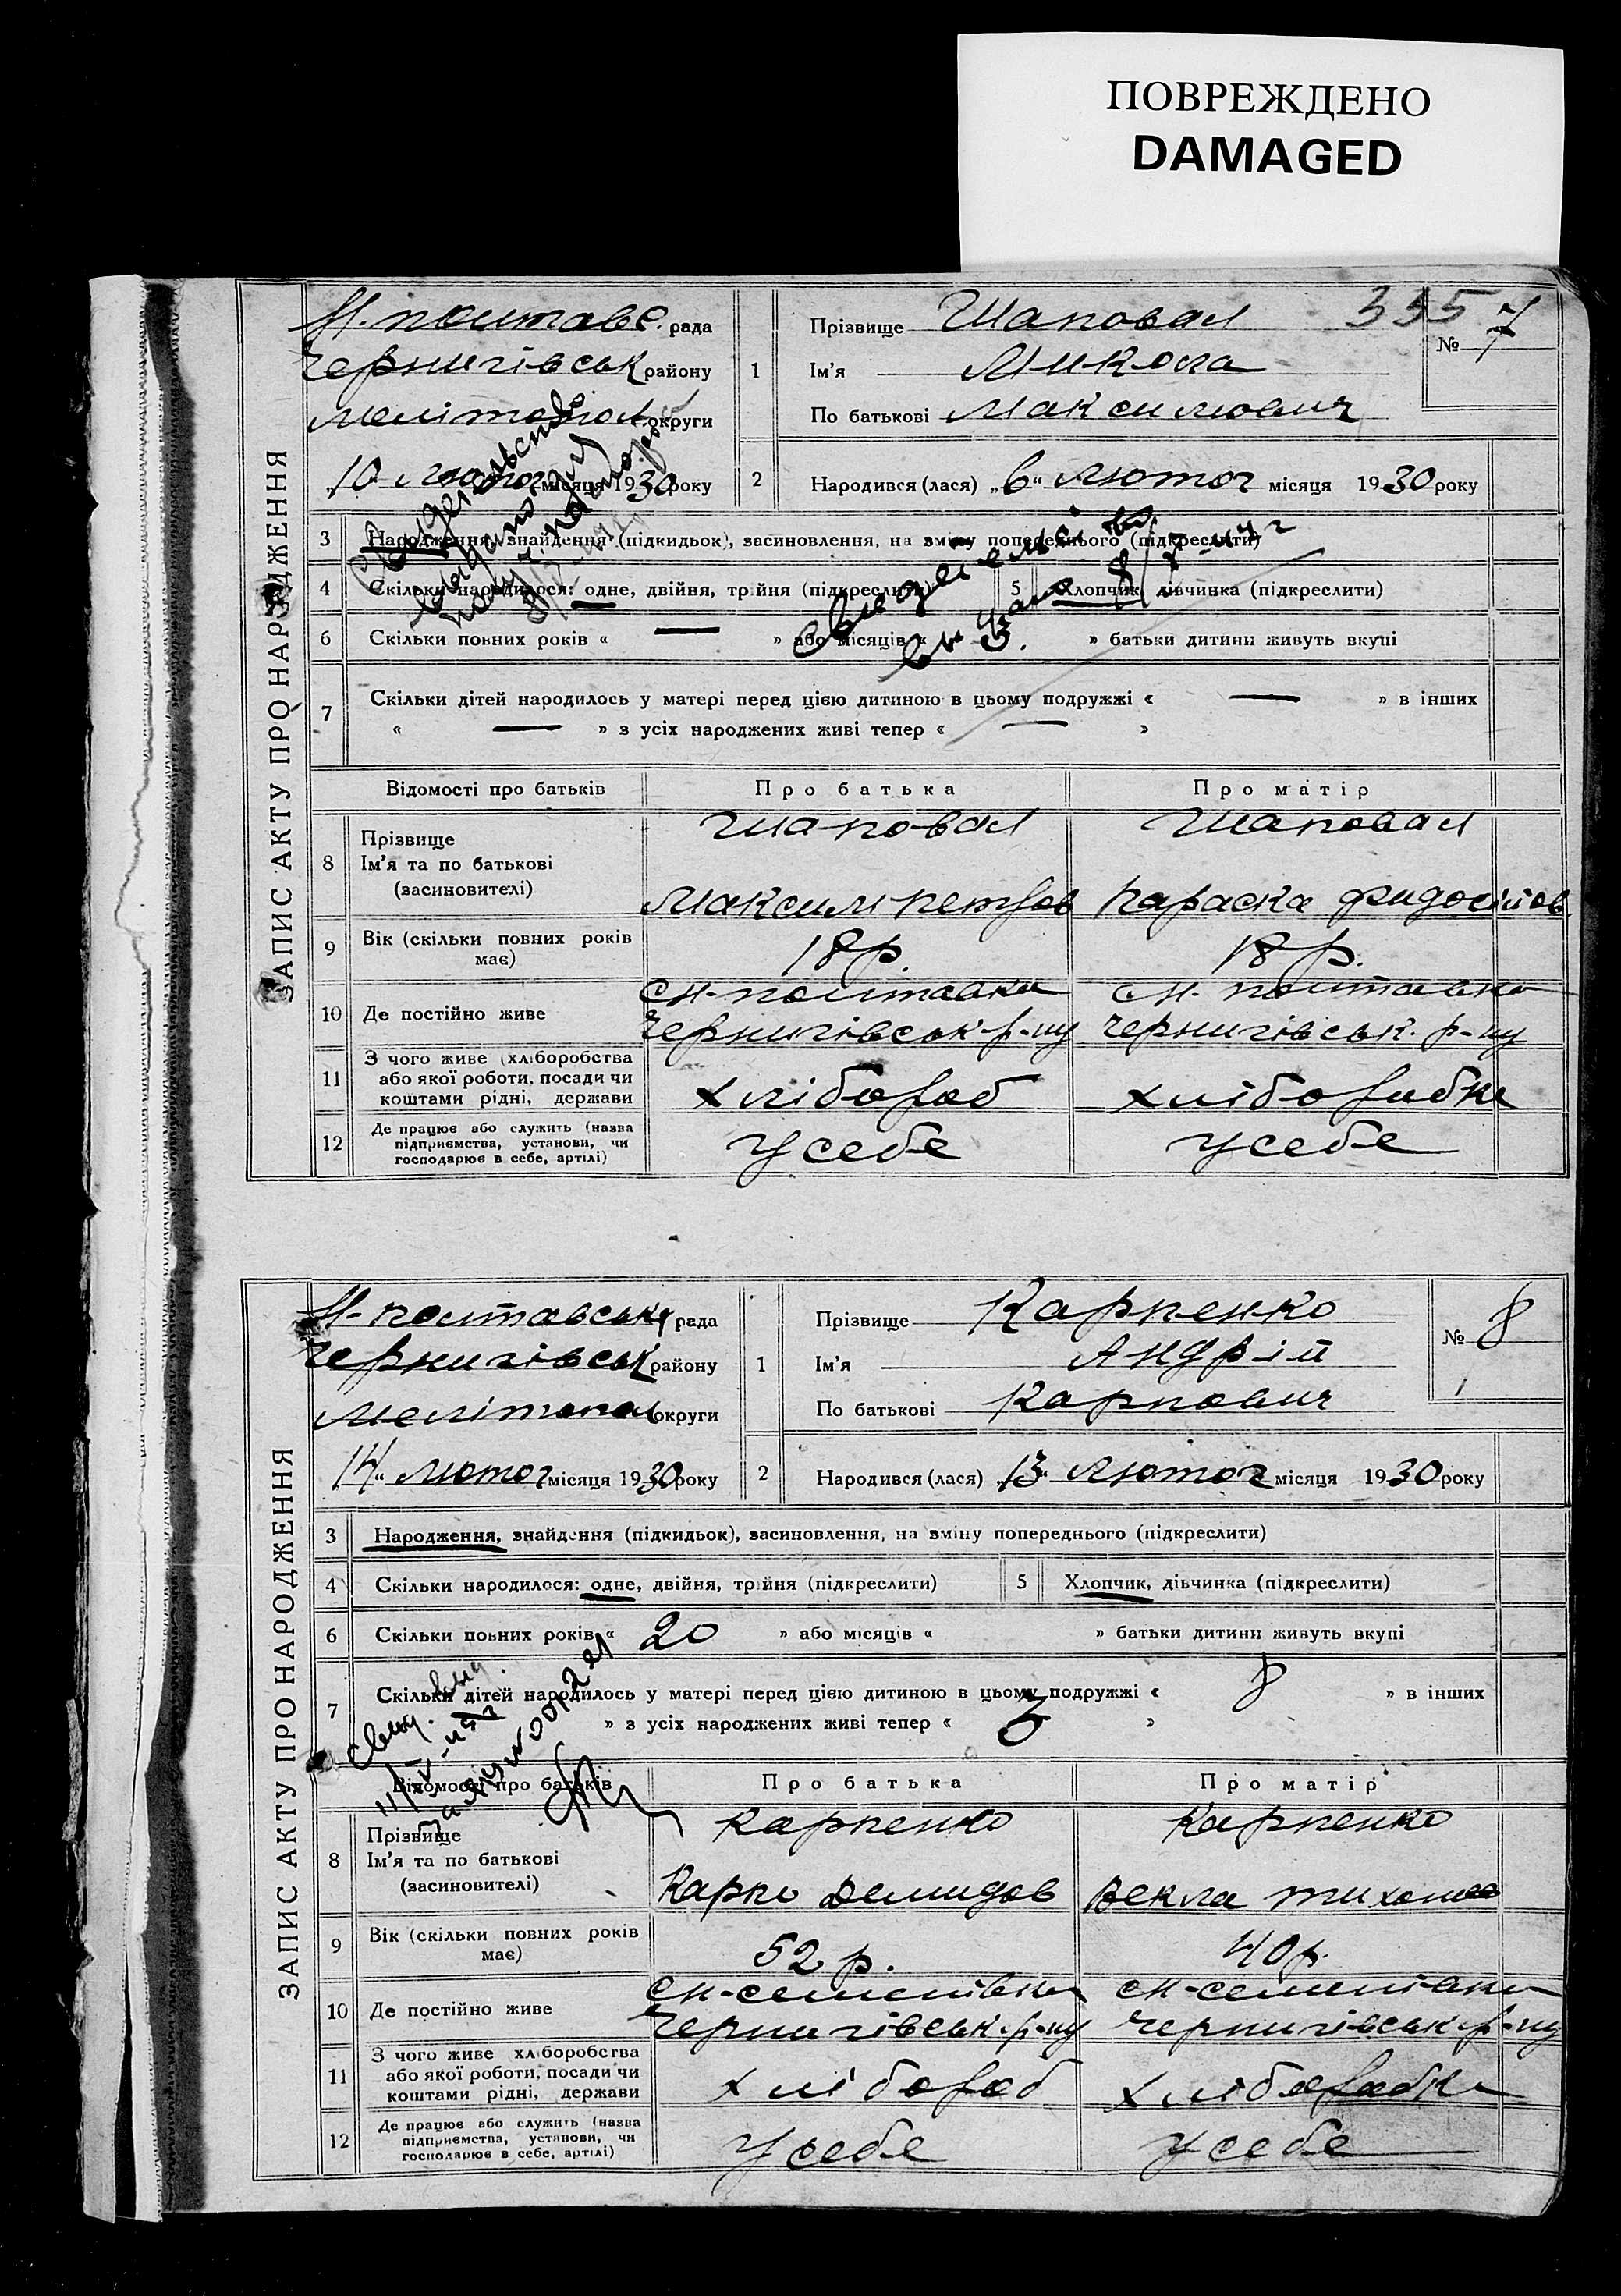 ПОВРЕЖДЕНО
DAMAGED
ЗАПИС АКТУ ПРО НАРОДЖЕННЯ
Н-полтавс. рада
Чернигівськ району
Мелітопол. округи
„10“ Лютог місяця 1930 року
1
Прізвище Шаповал
Ім’я Микола
По батькові Максимович
335
№ 7
2
Народився (лася) „6“ Лютог місяця 1930 року
3 Народження, знайдення (підкидьок), засиновлення, на зміну попереднього (підкреслити)
4 Скільки народилося: одне, двійня, трійня (підкреслити)
5 Хлопчик, дівчинка (підкреслити)
6 Скільки повних років « — » або місяців « 3. » батьки дитини живуть вкупі
7 Скільки дітей народилось у матері перед цією дитиною в цьому подружжі « — » в інших
« — » з усіх народжених живі тепер « — »
Свидетельство
выдано
Відомості про батьків
Про батька
Про матір
8
Прізвище
Ім’я та по батькові
(засиновителі)
Шаповал
Максим Петров
Шаповал
Параска Фидосіїов
9
Вік (скільки повних років
має)
18 р.
18 р.
10 Де постійно живе
с Н-полтавка
Чернигівськ. р-ну
с Н-полтавка
Чернигівськ. р-ну
11
З чого живе (хліборобства
або якої роботи, посади чи
коштами рідні, держави
хлібороб
хліборобка
12
Де працює або служить (назва
підприємства, установи, чи
господарює в себе, артілі)
У себе
У себе
ЗАПИС АКТУ ПРО НАРОДЖЕННЯ
Н-полтавськ рада
Чернигівськ району
Мелітопол округи
„14“ Лютог місяця 1930 року
1
Прізвище Карпенко
Ім’я Андрій
По батькові Карпович
№ 8
2
Народився (лася) „13“ Лютог місяця 1930 року
3 Народження, знайдення (підкидьок), засиновлення, на зміну попереднього (підкреслити)
4 Скільки народилося: одне, двійня, трійня (підкреслити)
5 Хлопчик, дівчинка (підкреслити)
6 Скільки повних років « 20 » або місяців « » батьки дитини живуть вкупі
7 Скільки дітей народилось у матері перед цією дитиною в цьому подружжі « 8 » в інших
» з усіх народжених живі тепер « 5 »
Свид. выд.
Відомості про батьків
Про батька
Про матір
8
Прізвище
Ім’я та по батькові
(засиновителі)
Карпенко
Карпо Демидов
Карпенко
Векла Тихонов
9
Вік (скільки повних років
має)
52 р.
40 р.
10 Де постійно живе
с Н-семенівка
Чернигівськ. р-ну
с Н-семенівка
Чернигівськ. р-ну
11
З чого живе хліборобства
або якої роботи, посади чи
коштами рідні, держави
хлібороб
хліборобка
12
Де працює або служить (назва
підприємства, установи, чи
господарює в себе, артілі)
У себе
У себе